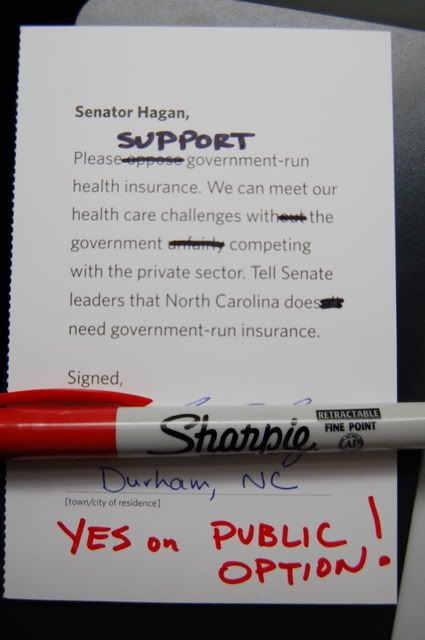 Senator Hagan,
SUPPORT
Please oppose government-run
health insurance. We can meet our
health care challenges without the
government unfairly competing
with the private sector. Tell Senate
leaders that North Carolina does
need government-run insurance.
Signed,
Sharpie
RETRACTABLE
FINE POINT
AP
Durham, NC
[town/city of residence]
YES on PUBLIC
OPTION!